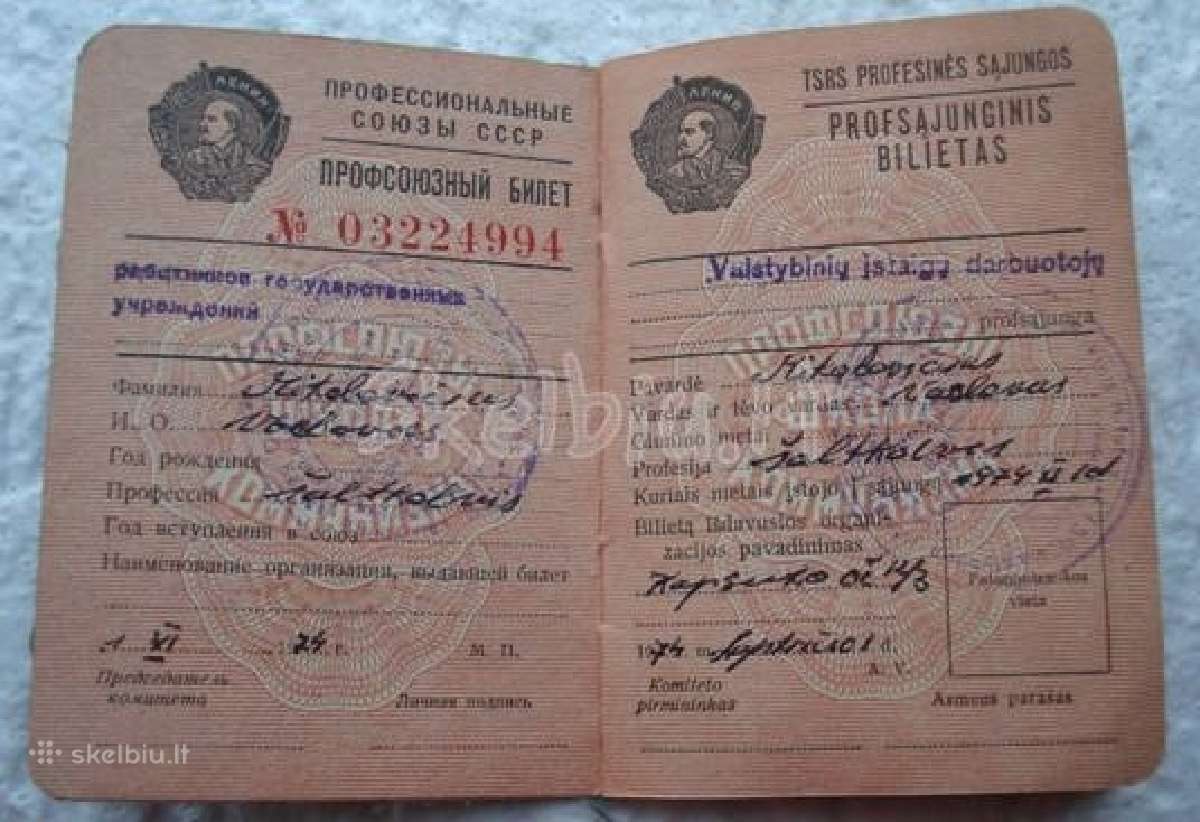 ЛЕНИН
ПРОФЕССИОНАЛЬНЫЕ
СОЮЗЫ СССР
ПРОФСОЮЗНЫЙ БИЛЕТ
№ 03224994
работников государственных
учреждений
Фамилия
И., О.
Год рождения
Профессия
Год вступления в союз
Наименование организации, выдавшей билет
1 VI 1974 г.
М. П.
Председатель
комитета
Личная подпись
skelbiu.lt
ЛЕНИН
TSRS PROFESINĖS SĄJUNGOS
PROFSĄJUNGINIS
BILIETAS
Valstybinių įstaigų darbuotojų
profsąjunga
Pavardė
Vardas ir tėvo vardas
Gimimo metai
Profesija šaltkalvis
Kuriais metais įstojo į sąjungą 1974 VI 1d
Bilietą išdavusios organi-
zacijos pavadinimas
Kapsuko
1974 m. d.
A. V.
Fotografijos
vieta
Komiteto
pirmininkas
Asmens parašas
skelbiu.lt